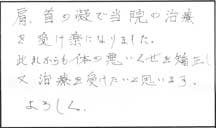 肩、首の凝で当院の治療
を受け楽になりました。
此れからも体の悪いくせを矯正し
又治療を受けたいと思います。
よろしく。